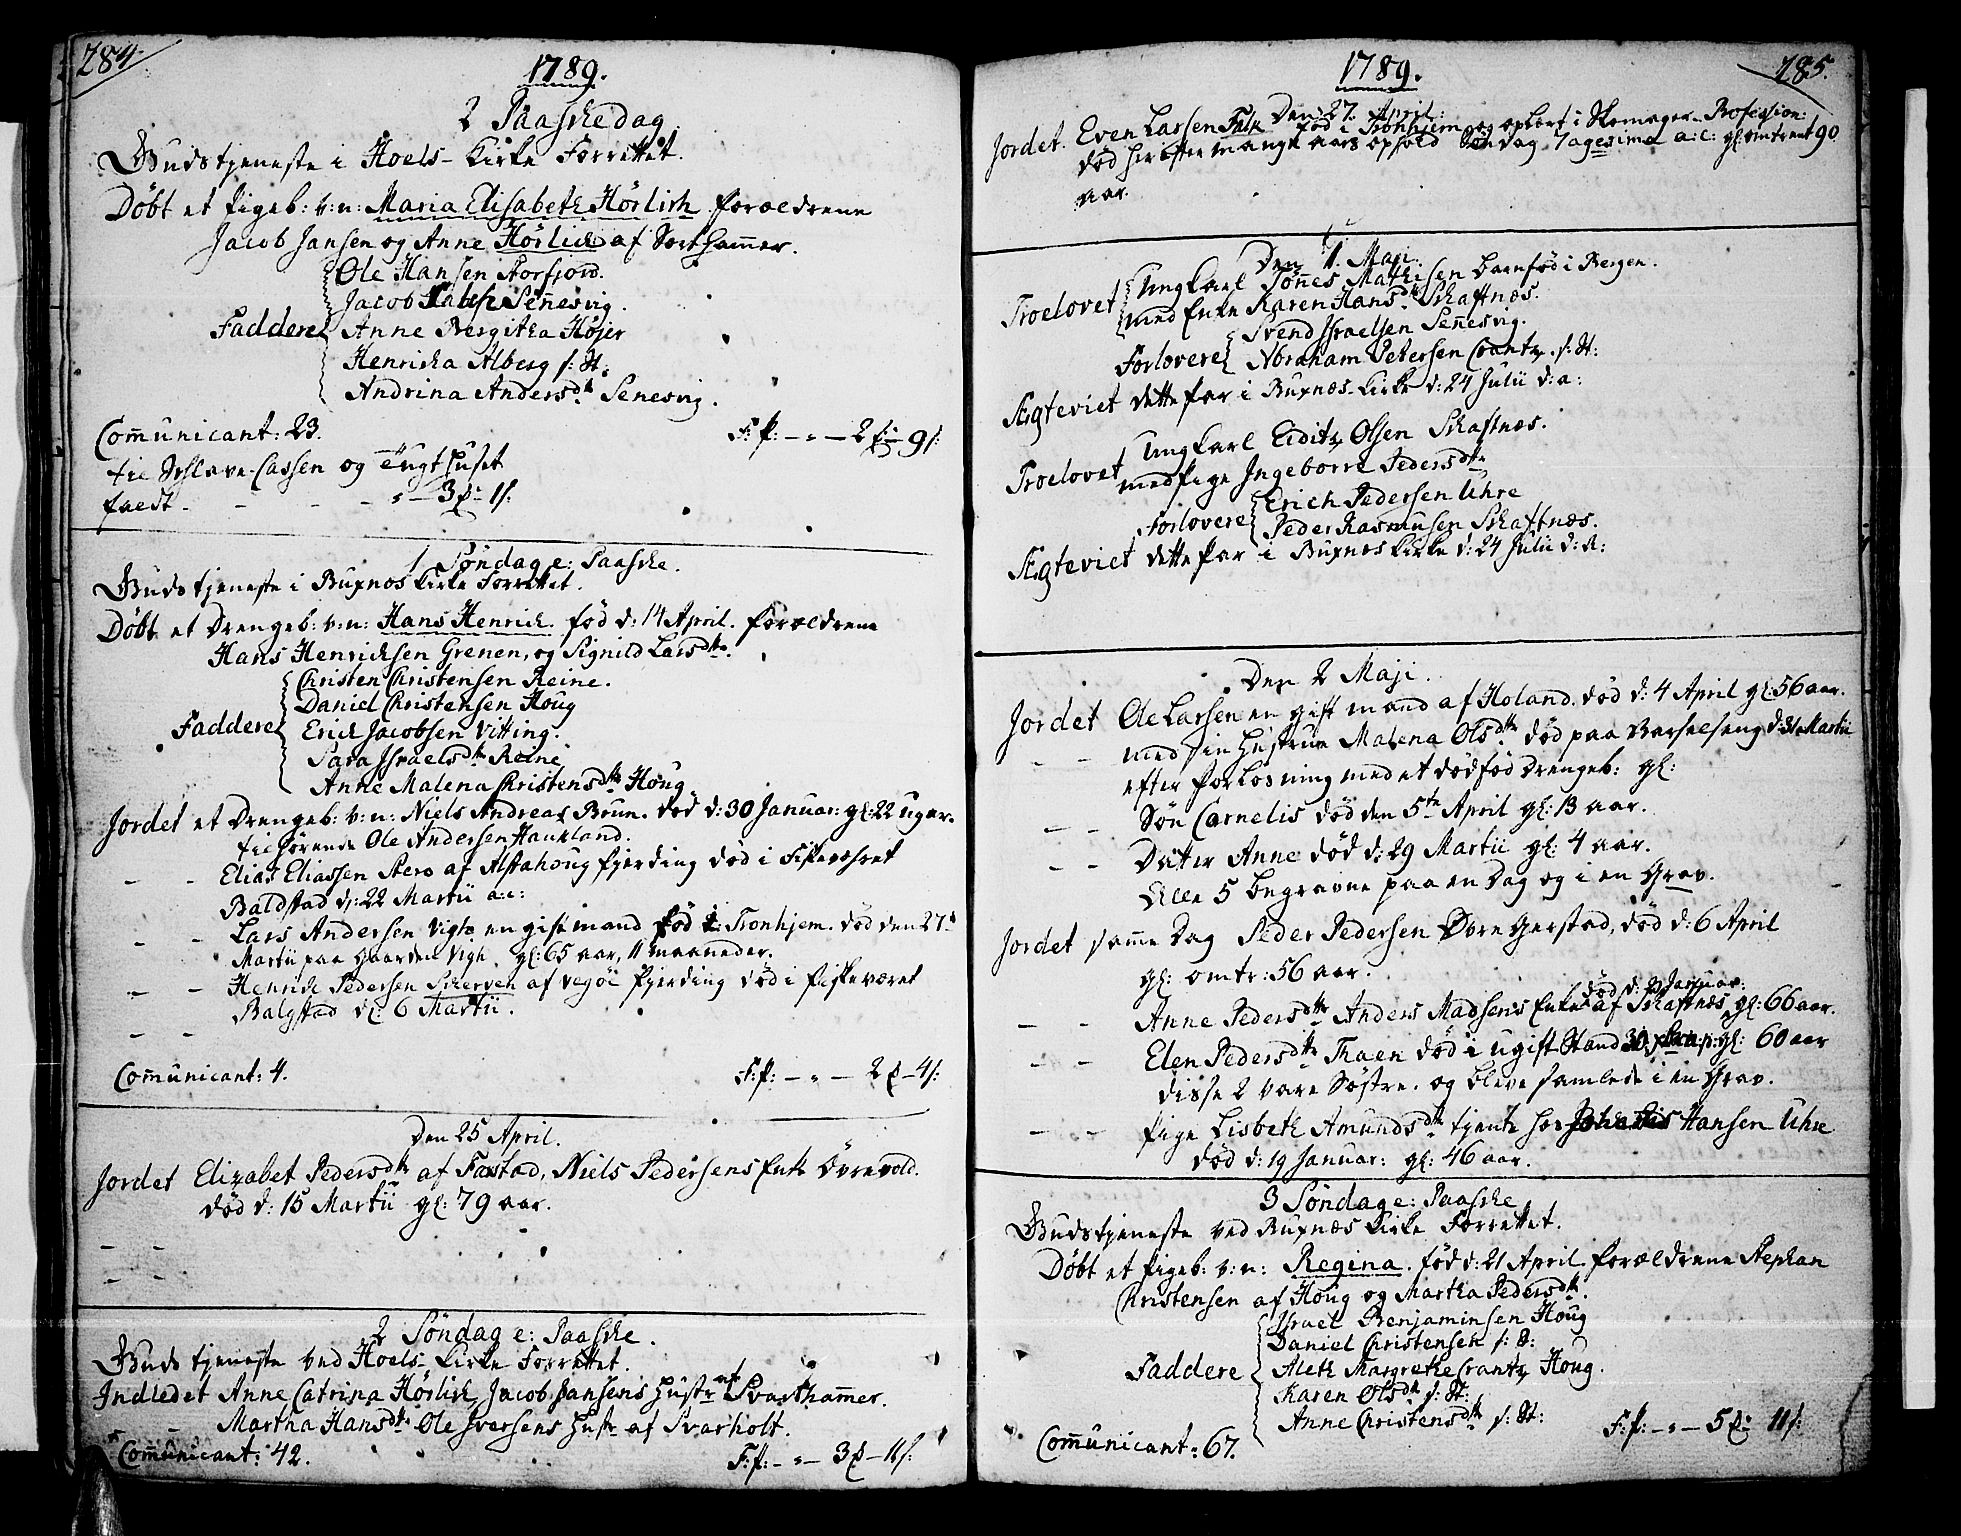 284
1789.
2 Paaschedag
Gudstjeneste i Hoels-Kirke Forrettet.
Døbt et Pigeb: v: n: Maria Elisabeth Hörlich forældrene
Jacob Jansen og Anne Hörlich af Sorthammer.
Ole Hansen Storfjord.
Jacob Senesvig.
Faddere Anne Bergitha Höjer
Henricha Alberg s: St:
Andrina Andersdtr Senesvig.
Comunicant: 23.
F: p: — „ — 2 — 9 s:
til Sclave-Cassen og Tugthuset
faldt - - - „ — 3 — 1 s:
1 Söndag e: Paasche.
Gudstjeneste i Buxnæs Kirke Forrettet.
Døbt et Drengeb: v: n: Hans Henrich. fød d: 14 April. forældrene
Hans Henrichsen Grenen, og Signild Larsdtr.
Christen Christensen Reine.
Daniel Christensen Houg
Faddere Erich Jacobsen Vitting.
Sara Israelsdtr Reine
Anne Malena Christensdtr Houg
Jordet et Drengeb: v: n: Niels Andreas Brun. død d: 30 Januar: gl: 22 uger.
tilhørende Ole Andersen Haukland.
— — Elias Eliassen Stero af Alstahoug fjerding død i Fiskeværet
Baldstad d: 22 Martii a: c:
— — Lars Andersen Vigh en gift mand fød i Tronhjem. død den 27de
Martii paa Gaarden Vigh gl: 65 aar, 11 maaneder.
— — Henrich Pedersen Scherven af Vegöe fjerding død i fiskeværet
Balgstad d: 6 Martii.
— —
Comunicant: 4.
F: p: — „ — 2 — 4 s:
Den 25 April.
Jordet Elizabet Pedersdtr af Farstad, Niels Pedersens Enke Övrevold.
død d: 15 Martii gl: 79 aar.
— —
— —
2 Söndag e: Paasche.
Gudstjeneste ved Hoels-Kirke Forrettet.
Indledet Anne Catrina Hörlich, Jacob Jansens Hustr. Svarthammer.
— Martha Hansdtr Ole Iversens Hustr af Svarholt.
Comunicant: 42.
F: p: — „ — 3 — 11 s:
1789.
285.
Den 27. April:
Jordet. Even Larsen Falk fød i Tronhjem og oplært i Skomager-Profession:
død her efter mange aars ophold Søndag 7agesima a: c: gl: omtrent 90
aar.
Den 1. Maji.
Troelovet Ungkarl Jönes Mathisen barnfød i Bergen.
med Enke Karen Hansdtr Schaftnæs.
Forlovere Svend Israelsen Senesvig.
Abraham Petersen Crantz. s: St:
Ægteviet dette par i Buxnæs-Kirke d: 24 Julii d: a:
Troelovet Ungkarl Eiditz Olsen Schaftnæs.
med Pige Ingeborre Pedersdtr
Forlovere Erich Pedersen Uhre
Peder Rasmusen Schaftnæs.
Ægteviet dette par i Buxnæs Kirke d: 24 Julii d: a:
Den 2 Maji.
Jordet Ole Larsen en gift mand af Holand. død d: 4 April gl: 56 aar.
— — med sin Hustrue Malena Olsdtr død paa Barselseng d: 31 Martii
efter forløsning med et dødfød Drengeb: gl:
— — Søn Carnelis død den 5te April gl: 13 aar.
— — Dater Anne død d: 29 Martii gl: 4 aar.
Alle 5 begravne paa en Dag og i en Grav.
Jordet samme Dag Peder Pedersen Dore Gerstad, død d: 6 April
gl: omtr: 56 aar.
død d: 29 Januar:
— — Anne Pedersdtr Anders Madsens Enke af Schaftnæs gl: 66 aar.
— — Elen Pedersdtr Thaen død i ugift Stand 30 gl: 60 aar
disse 2 vare Søstre. og bleve samlede i en Grav.
— — Pige Lisbeth Amundsdtr tjente hos Hansen Uhre
død d: 19 Januar: gl: 46 aar.
3 Söndag e: Paasche
Gudstjeneste ved Buxnæs Kirke Forrettet.
Døbt et Pigeb: v: n: Regina. fød d: 21 April. forældrene Stephan
Christensen af Houg og Martha Pedersdtr.
Israel Benjaminsen Houg
Daniel Christensen s: St:
Faddere Aleth Margrethe Crantz Houg.
Karen Olsdtr s: St:
Anne Christensdtr s: St:
F: p: — „ — 5 11 s:
Comunicant: 67.